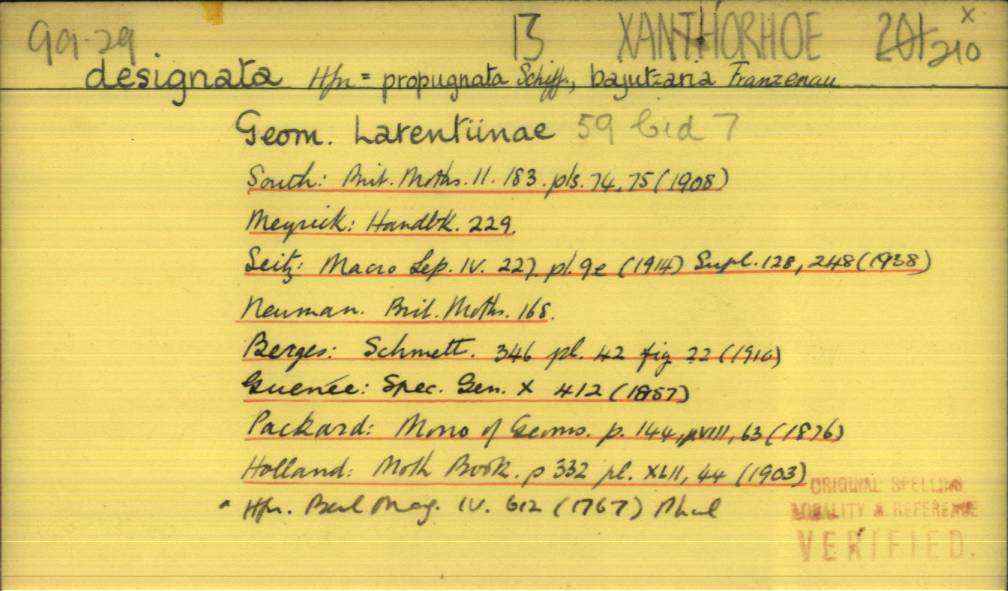 13 XANTHORHOE 201 210 x
designata Hfn = propugnata Schiff., bajutzaria Franzenau
Geom. Larentiinae 59 bid 7
South: Brit. Moths. II. 183. pls. 74, 75 (1908)
Meyrick: Handbk. 229.
Seitz: Macro Lep. IV. 227. pl. 9e (1914) Supl. 128, 248 (1938)
Neuman. Brit. Moths. 168.
Berges: Schmett. 346 pl. 42 fig 22 (1910)
Guenée: Spec. Gen. X 412 (1857)
Packard: Mono of Geoms. p. 144, pVIII, 63 (1876)
Holland: Moth Book. p 332 pl. XLII, 44 (1903)
Hfn. Berl Mag. IV. 612 (1767) Phal
ORIGINAL SPELLING
LOCALITY & REFERENCE
VERIFIED.